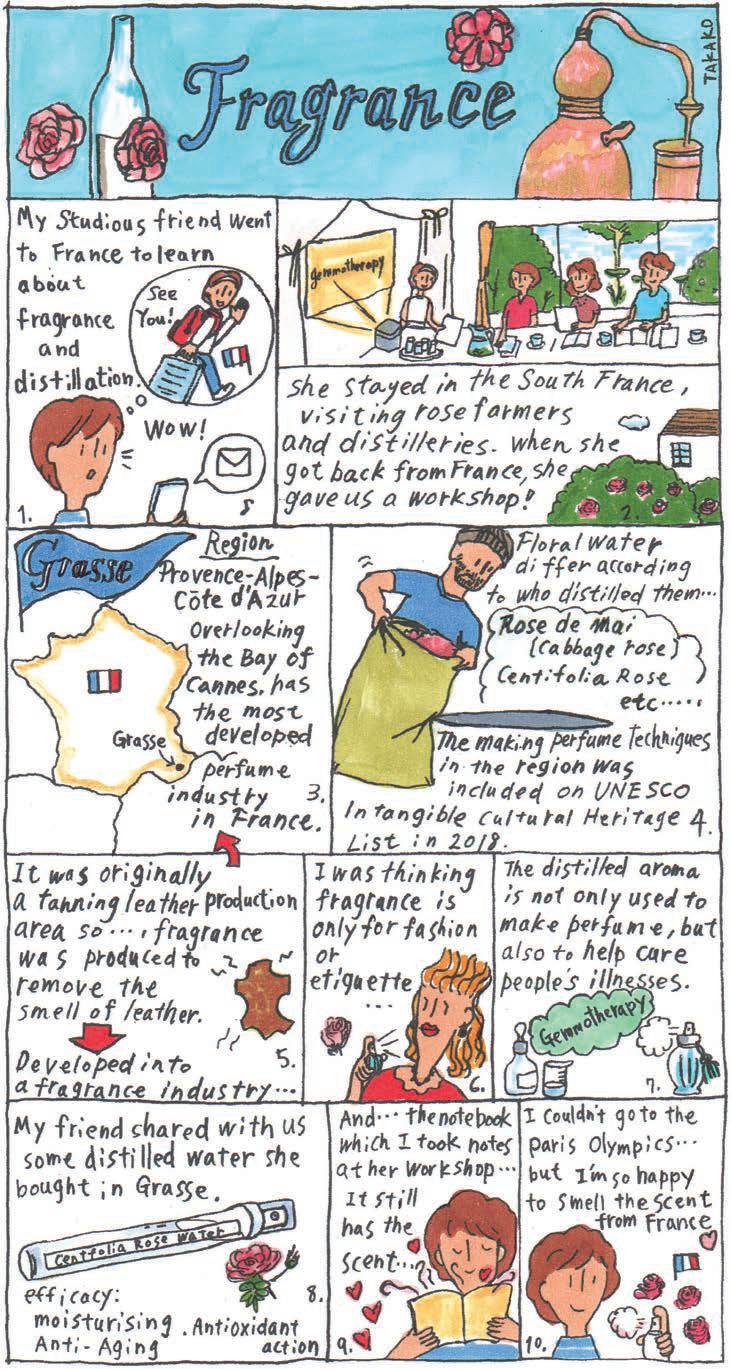 Fragrance
TAKAKO
My Studious friend went
to France to learn
about
fragrance
and
distillation.
See
You!
Wow!
1.
gemmotherapy
she stayed in the South France,
visiting rose farmers
and distilleries. When she
got back from France, she
gave us a workshop!
2.
Grasse
Region
Provence-Alpes-
Côte d'Azur
Overlooking
the Bay of
Cannes, has
the most
developed
perfume
industry
in France.
Grasse
3.
Floral water
differ according
to who distilled them...
Rose de Mai
(Cabbage rose)
Centifolia Rose
etc.....
The making perfume Techniques
in the region was
included on UNESCO
Intangible Cultural Heritage
List in 2018.
4.
It was originally
a tanning leather production
area so..., fragrance
was produced to
remove the
smell of leather.
Developed into
a fragrance industry...
5.
I was thinking
fragrance is
only for fashion
or
etiquette
...
6.
The distilled aroma
is not only used to
make perfume, but
also to help cure
people's illnesses.
Gemmotherapy
7.
My friend shared with us
some distilled water she
bought in Grasse.
Centfolia Rose Water
efficacy:
moisturising . Antioxidant
Anti-Aging action
8.
And... the notebook
which I took notes
at her workshop...
It still
has the
scent...
9.
I couldn't go to the
Paris Olympics...
but I'm so happy
to smell the scent
from France
10.